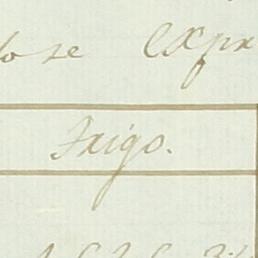 lose Expr
Trigo.